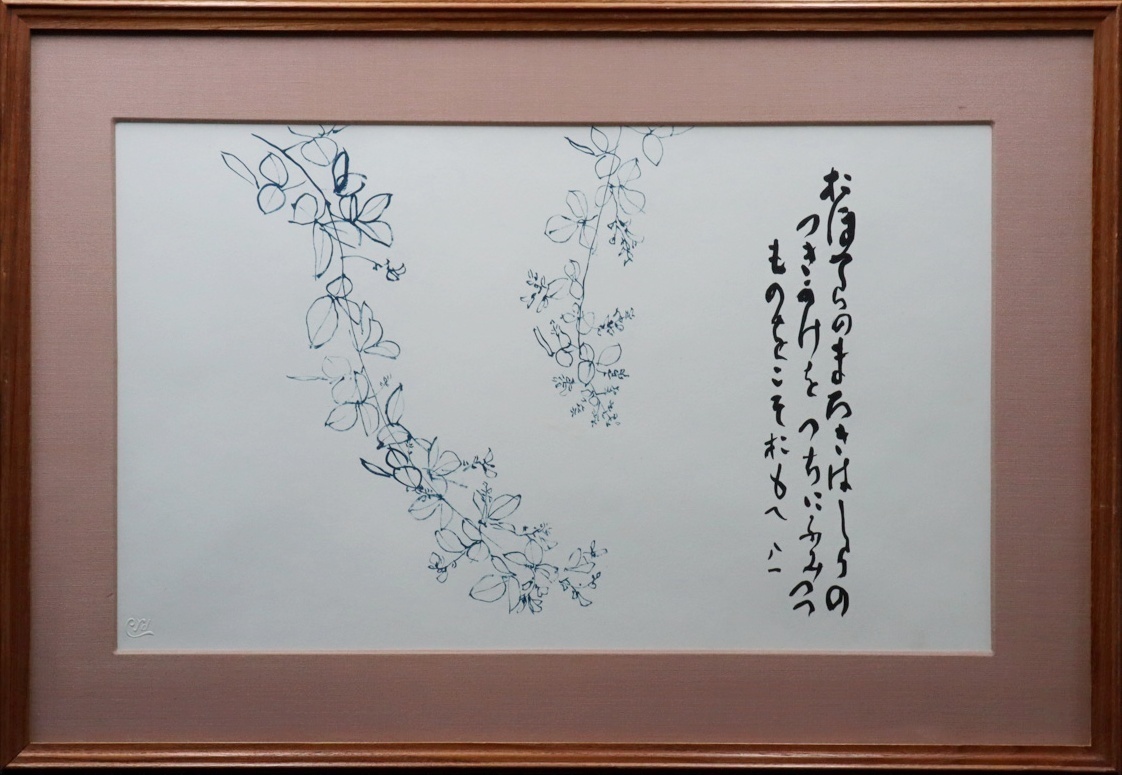 おほてらのまろきはしらの
つきかけをつちにふみつつ
ものをこそおもへ 八一